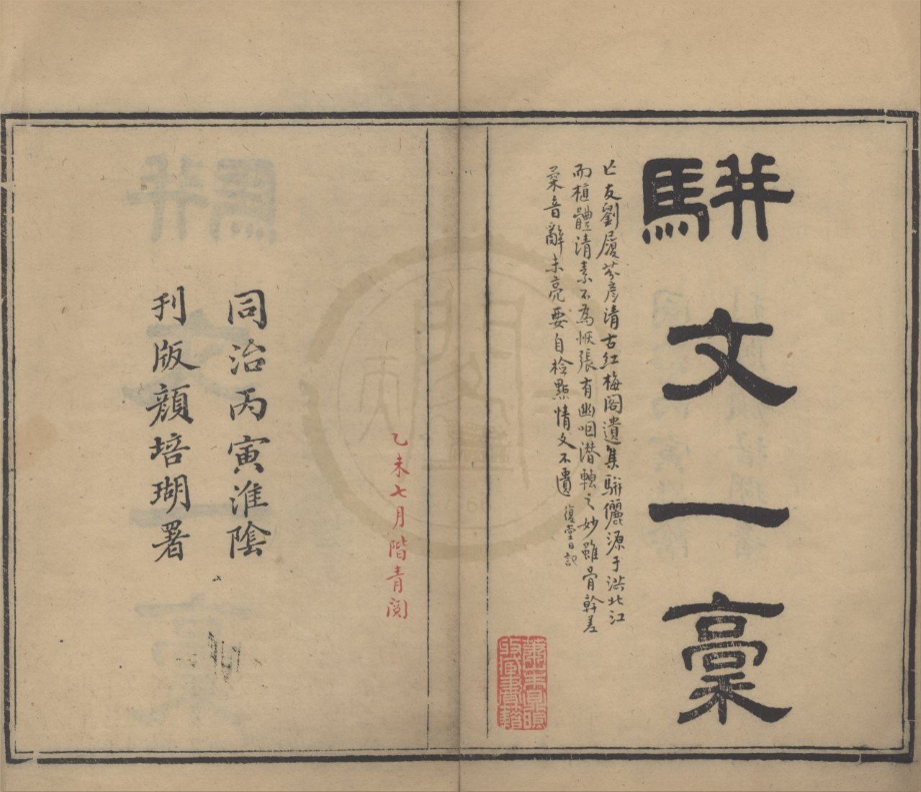 駢文一稾
亡友劉履芬彦清古紅梅閣遺集駢儷源于洪北江
而植體清素不為恢張有幽咽潛轉之妙雖骨幹差
柔音辭未亮要自檢點情文不匱復堂日記
乙未七月階青閱
同治丙寅淮陰
刊版顏培瑚署